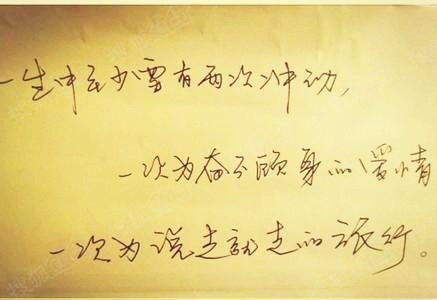 一生中至少要有两次冲动，
一次为奋不顾身的爱情
一次为说走就走的旅行。